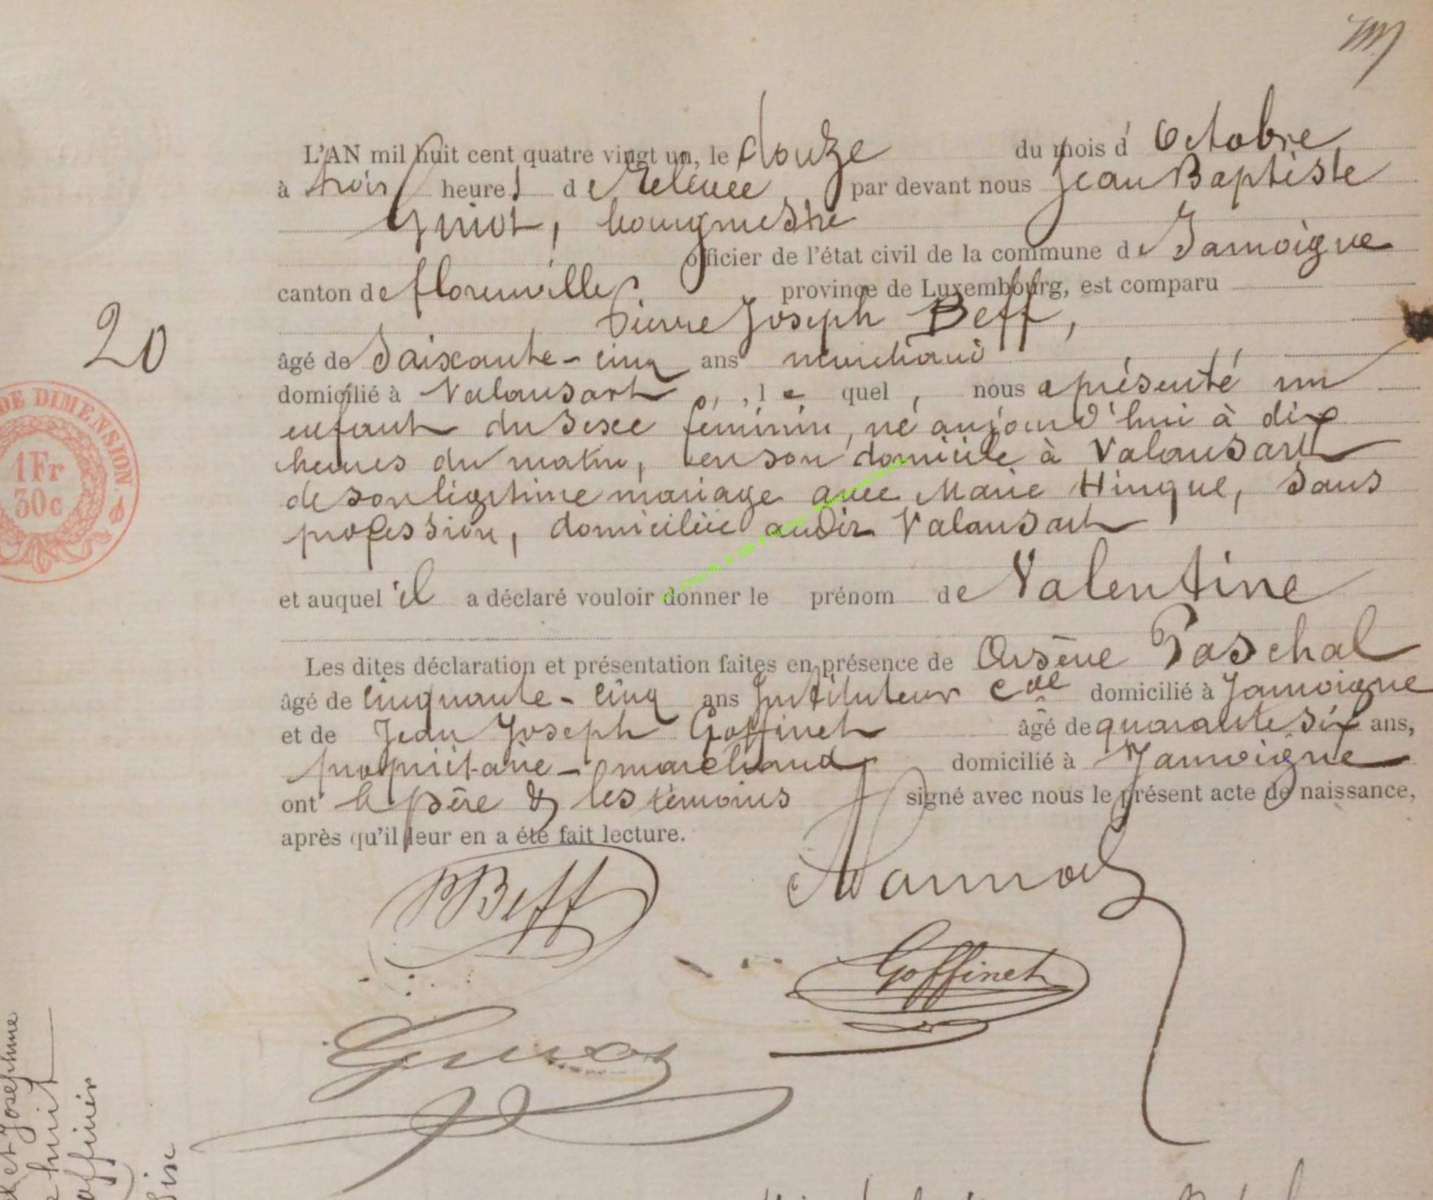 L'AN mil huit cent quatre vingt un, le douze du mois d'Octobre
à trois heures de Relevée par devant nous Jean Baptiste
Guiot, bourgmestre
officier de l'état civil de la commune de Jamoigne
canton de florenville province de Luxembourg, est comparu
Pierre Joseph Beff,
âgé de Soixante-cinq ans marchand
domicilié à Valansart, le quel, nous a présenté un
enfant du Sexe féminin, né aujourd'hui à dix
heures du matin, en son domicile à Valansart
de son légitime mariage avec Marie Hinque, Sans
profession, domiciliée audit Valansart
et auquel il a déclaré vouloir donner le prénom de Valentine
Les dites déclaration et présentation faites en présence de Arsène Paschal
âgé de cinquante-cinq ans Instituteur cal domicilié à Jamoigne
et de Jean Joseph Goffinet âgé de quarante six ans,
propriétaire-marchand domicilié à Jamoigne
ont le père & les témoins signé avec nous le présent acte de naissance,
après qu'il leur en a été fait lecture.
PBeff
Goffinet
Guiot
20
DE DIMENSION
1Fr
30c
et Josephine
huit
six